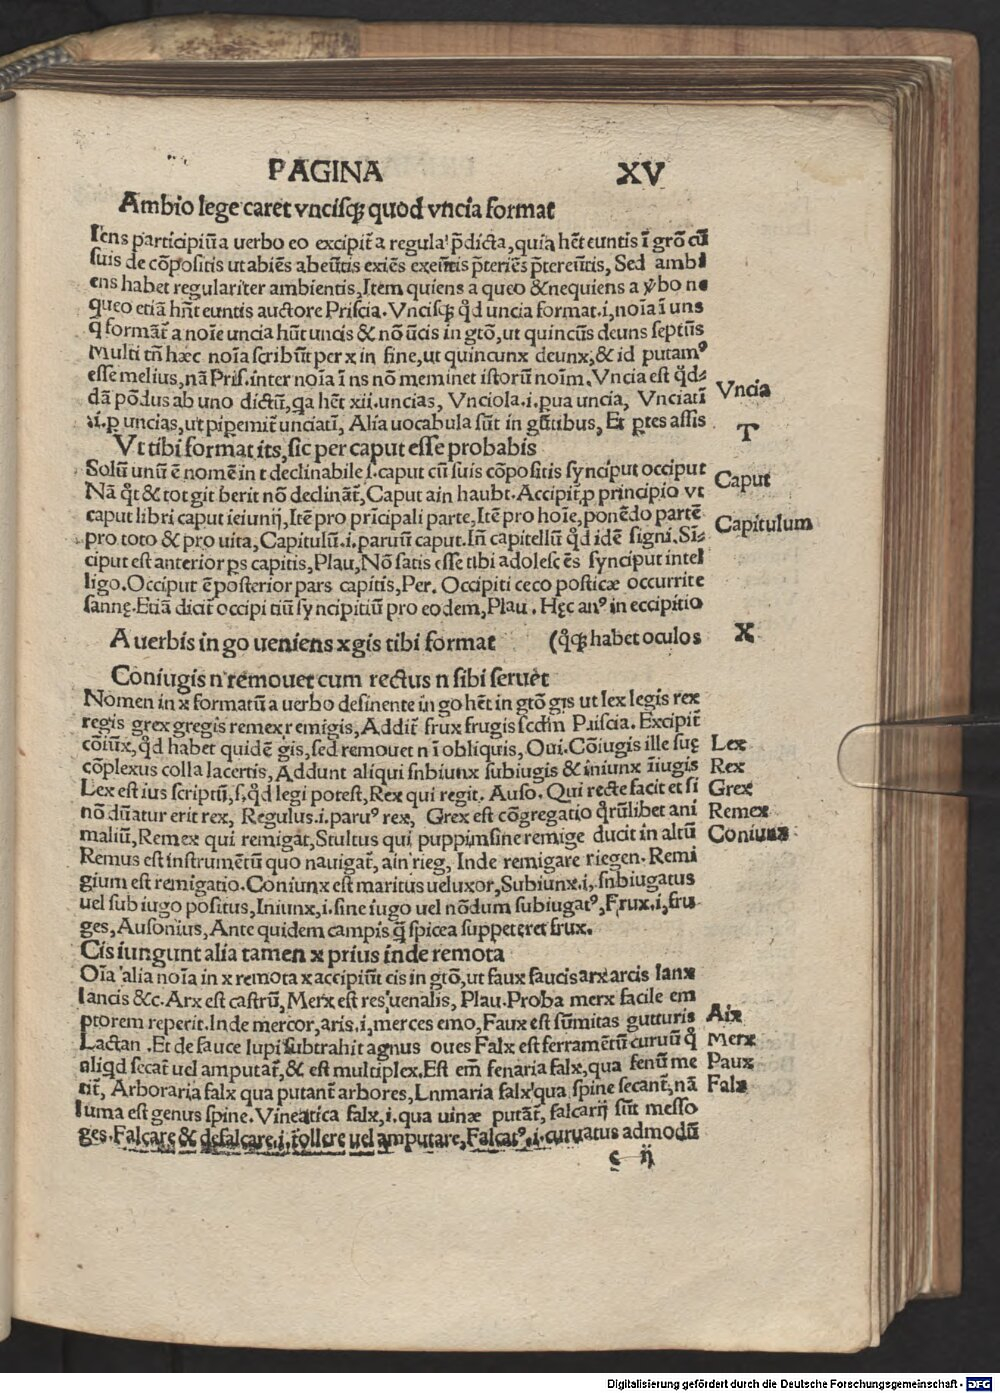 PAGINA XV
Ambio lege caret vncisqꝫ quod vncia format
Iens participiū a uerbo eo excipit̄ a regula p̄dicta, quia hēt euntis ī grō cū
suis de cōpositis ut abiēs abeūtis exiēs exeūtis p̄teriēs p̄tereūtis, Sed ambi
ens habet regulariter ambientis, Item quiens a queo & nequiens a ỽbo ne
queo etiā hn̄t euntis auctore Priscia. Vncisqꝫ qd̄ uncia format .i, noīa ī uns
q̄ formāt̄ a noīe uncia hūt uncis & nō ūcis in gtō, ut quincūs deuns septūs
Multi tn̄ hæc noīa scribūt per x in fine, ut quincunx deunx, & id putamꝰ
esse melius, nā Pris. inter noīa ī ns nō meminet istorū noīm. Vncia est qd̄-
dā pōdus ab uno dictū, qa hēt xii. uncias, Vnciola .i. pua uncia, Vnciatī Vncia
.i. p uncias, ut pipemit̄ unciatī, Alia uocabula sūt in gūtibus, Et ptes assis T
Vt tibi format its, sic per caput esse probabis
Solū unū ē nomē in t declinabile s. caput cū suis cōpositis synciput occiput
Nā qt̄ & tot git berit nō declināt̄, Caput ain haubt. Accipit̄ p principio vt Caput
caput libri caput ieiunij, Itē pro prīcipali parte, Itē pro hoīe, ponēdo partē
pro toto & pro uita, Capitulū .i. paruū caput. In̄ capitellū qd̄ idē signi. Sī- Capitulum
ciput est anterior ps capitis, Plau, Nō satis esse tibi adolescēs synciput intel
ligo. Occiput ē posterior pars capitis, Per. Occipiti ceco posticæ occurrite
sannę. Etiā dicit̄ occipitiū syncipitiū pro eodem, Plau. Hęc anꝰ in eccipitio
A uerbis in go ueniens x gis tibi format (qq̄ꝫ habet oculos X
Coniugis n remouet cum rectus n sibi seruet
Nomen in x formatū a uerbo desinente in go hēt in gtō gis ut lex legis rex
regis grex gregis remex remigis, Addit̄ frux frugis secdm̄ Priscia. Excipit̄
cōiūx, qd̄ habet quidē gis, sed remouet n ī obliquis, Oui. Cōiugis ille suę Lex
cōplexus colla lacertis, Addunt aliqui subiunx subiugis & iniunx īiugis Rex
Lex est ius scriptū, s, qd̄ legi potest, Rex qui regit. Auso. Qui recte facit et si Grex
nō dn̄atur erit rex, Regulus .i. paruꝰ rex, Grex est cōgregatio qrūlibet ani Remex
maliū, Remex qui remigat, Stultus qui puppim sine remige ducit in altū Coniunx
Remus est instrumētū quo nauigat̄, ain rieg, Inde remigare riegen. Remi
gium est remigatio. Coniunx est maritus uel uxor, Subiunx .i, subiugatus
uel sub iugo positus, Iniunx, i. sine iugo uel nōdum subiugatꝰ, Frux .i, fru-
ges, Ausonius, Ante quidem campis q̄ spicea suppeteret frux.
Cis iungunt alia tamen x prius inde remota
Oīa alia noīa in x remota x accipiūt cis in gtō, ut faux faucis arx arcis lanx
lancis &c. Arx est castrū, Merx est res uenalis, Plau. Proba merx facile em
ptorem reperit. Inde mercor, aris .i, merces emo, Faux est sūmitas gutturis Aix
Lactan. Et de fauce lupi subtrahit agnus oues Falx est ferramētū curuū q̄ Merx
aliqd secat̄ uel amputat̄, & est multiplex. Est em̄ fenaria falx, qua fenū me Faux
tit̄, Arboraria falx qua putant̄ arbores, Lnmaria falx qua spine secant̄, nā Falx
luma est genus spine. Vineatica falx, i. qua uinæ putāt̄, falcarij sūt messo
ges. Falcare & defalcare .i. tollere uel amputare, Falcatꝰ .i. curuatus admodū
c ij
Digitalisierung gefördert durch die Deutsche Forschungsgemeinschaft - DFG